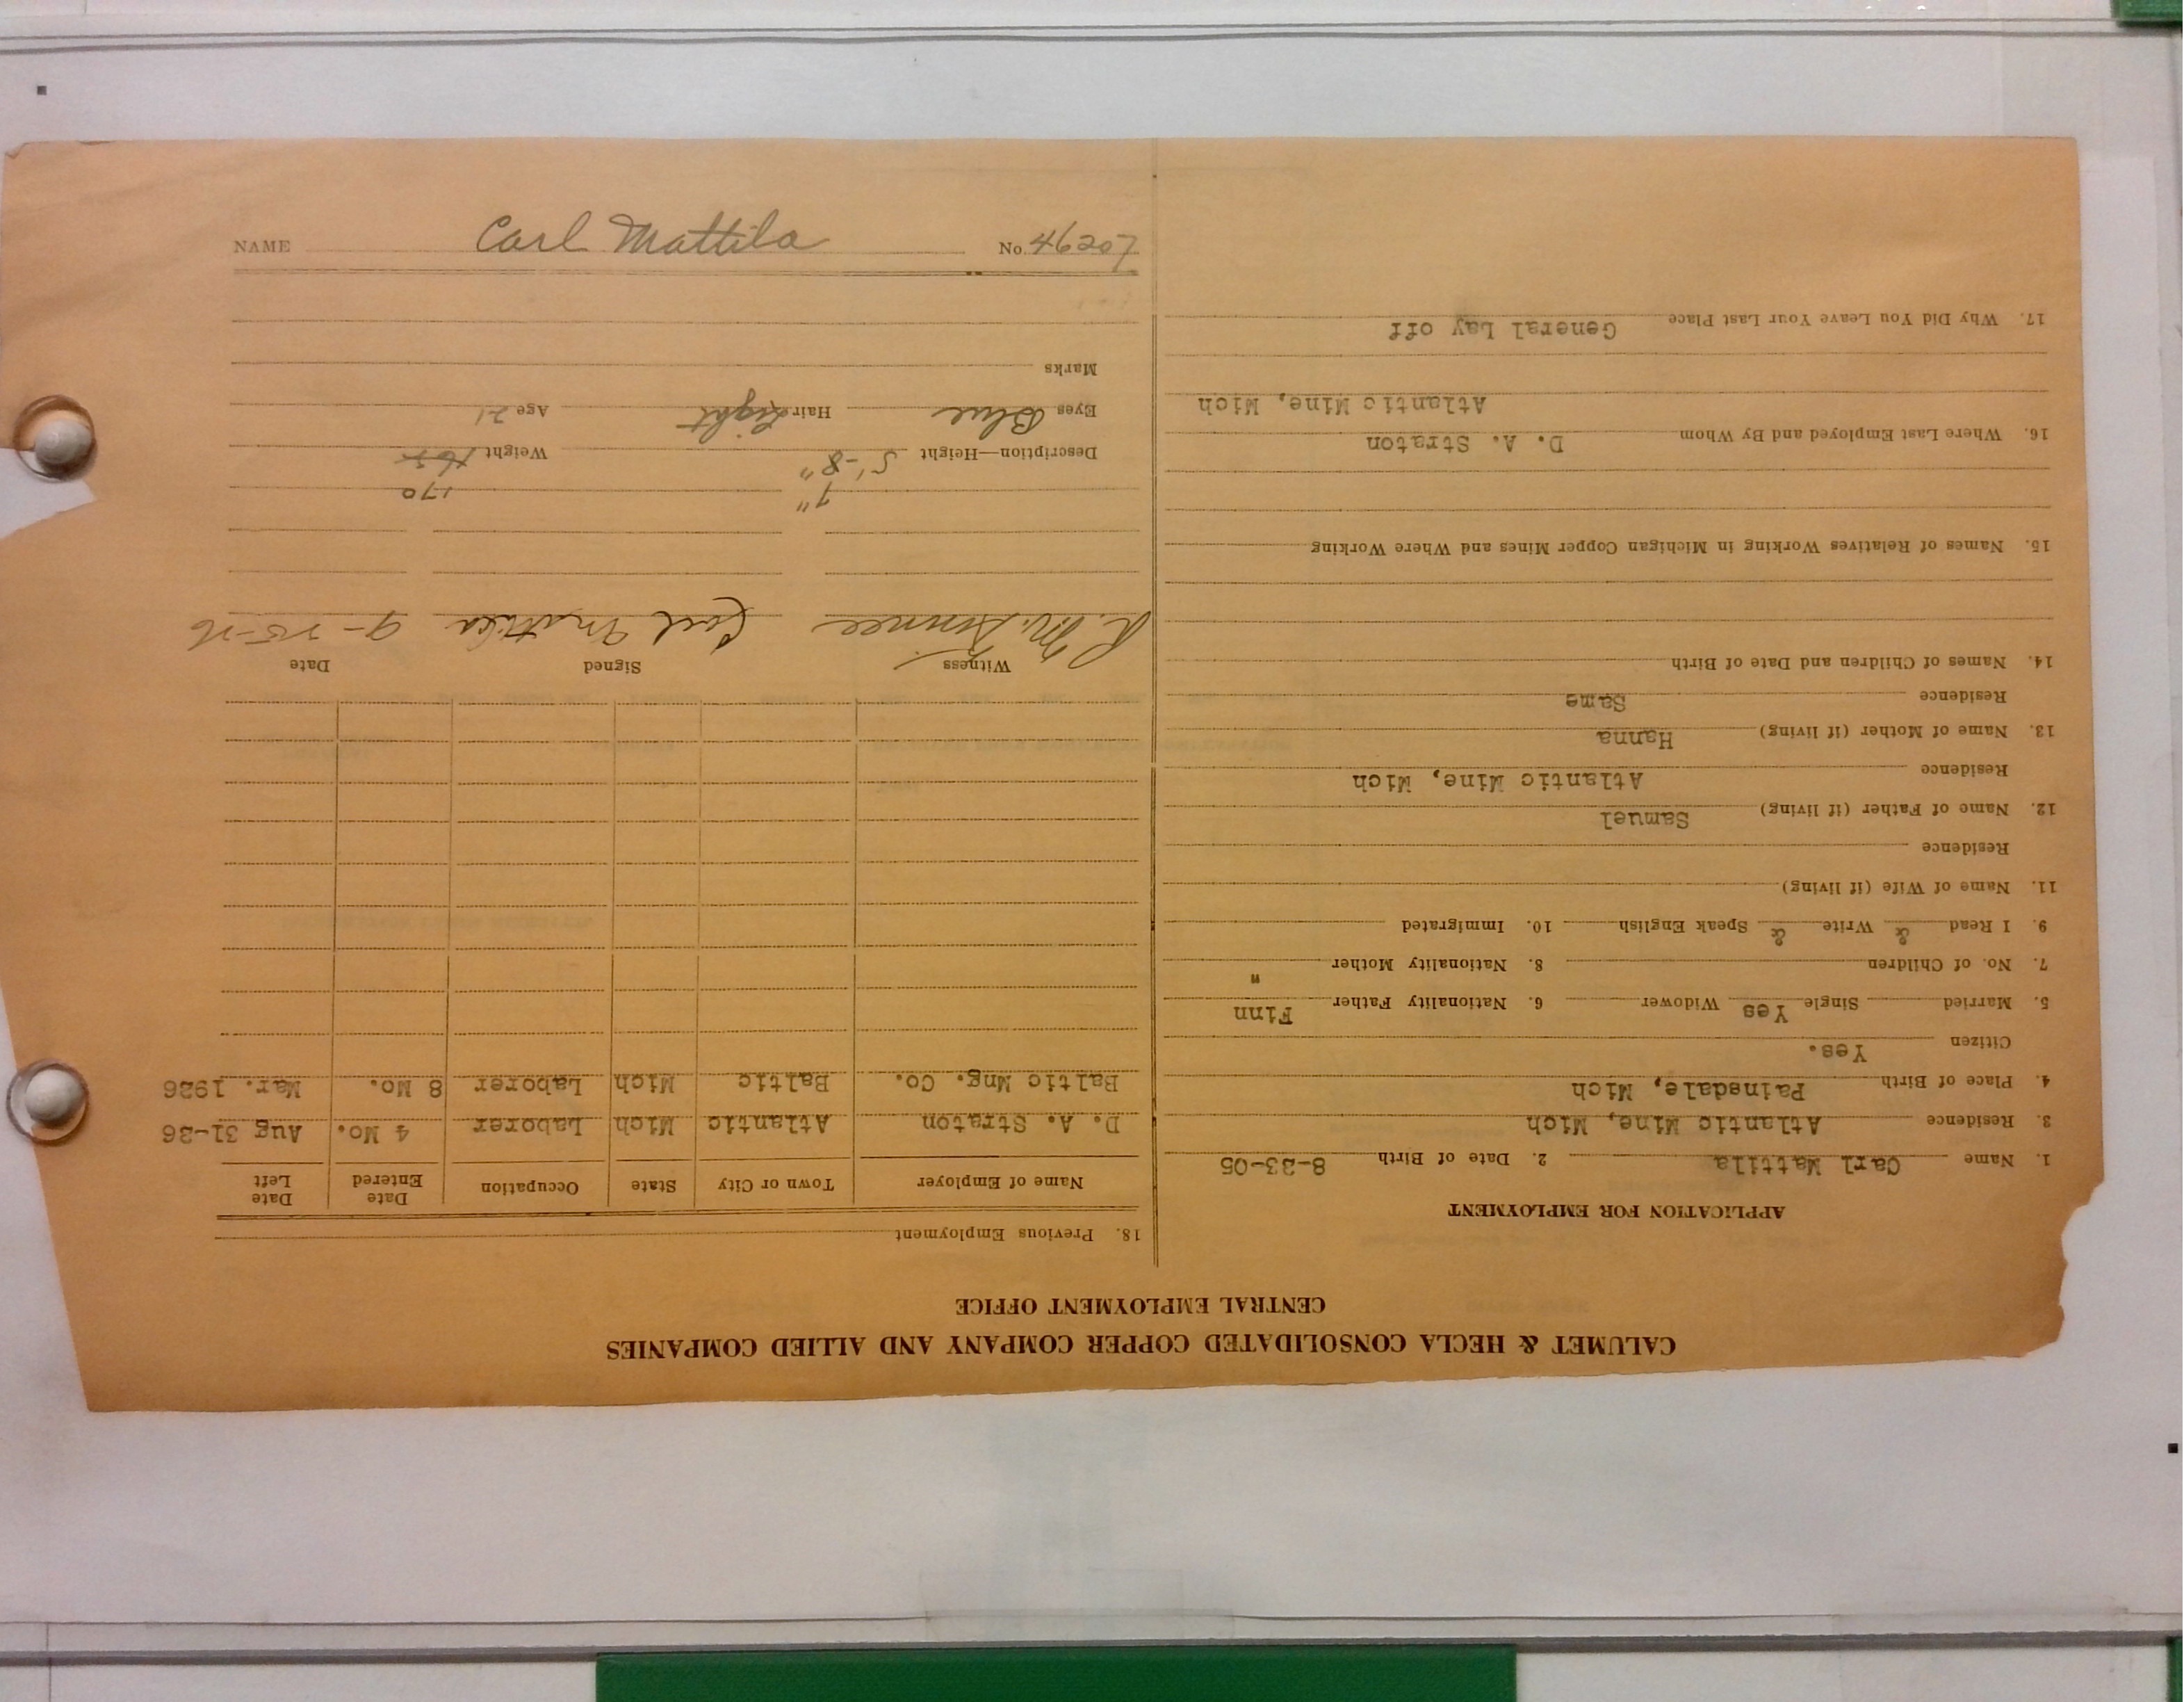 CALUMET & HECLA CONSOLIDATED COPPER COMPANY AND ALLIED COMPANIES
CENTRAL EMPLOYMENT OFFICE
APPLICATION FOR EMPLOYMENT
1. Name Carl Mattila 2. Date of Birth 8-23-05
3. Residence Atlantic Mine, Mich
4. Place of Birth Painsdale, Mich
Citizen Yes.
5. Married Single Yes Widower 6. Nationality Father Finn
7. No. of Children 8. Nationality Mother "
9. I Read & Write & Speak English 10. Immigrated
11. Name of Wife (if living)
Residence
12. Name of Father (if living) Samuel
Residence Atlantic Mine, Mich
13. Name of Mother (if living) Hanna
Residence Same
14. Names of Children and Date of Birth
15. Names of Relatives Working in Michigan Copper Mines and Where Working
16. Where Last Employed and By Whom D. A. Straton
Atlantic Mine, Mich
17. Why Did You Leave Your Last Place General Lay off
18. Previous Employment
Name of Employer Town or City State Occupation Date Entered Date Left
D. A. Straton Atlantic Mich Laborer 4 Mo. Aug 31-26
Baltic Mng. Co. Baltic Mich Laborer 8 Mo. Mar. 1926
Witness Signed Date
Carl Mattila 9-25-26
7" 170
Description—Height 5'-8" Weight 165
Eyes Blue Hair Light Age 21
Marks
NAME Carl Mattila No. 46207